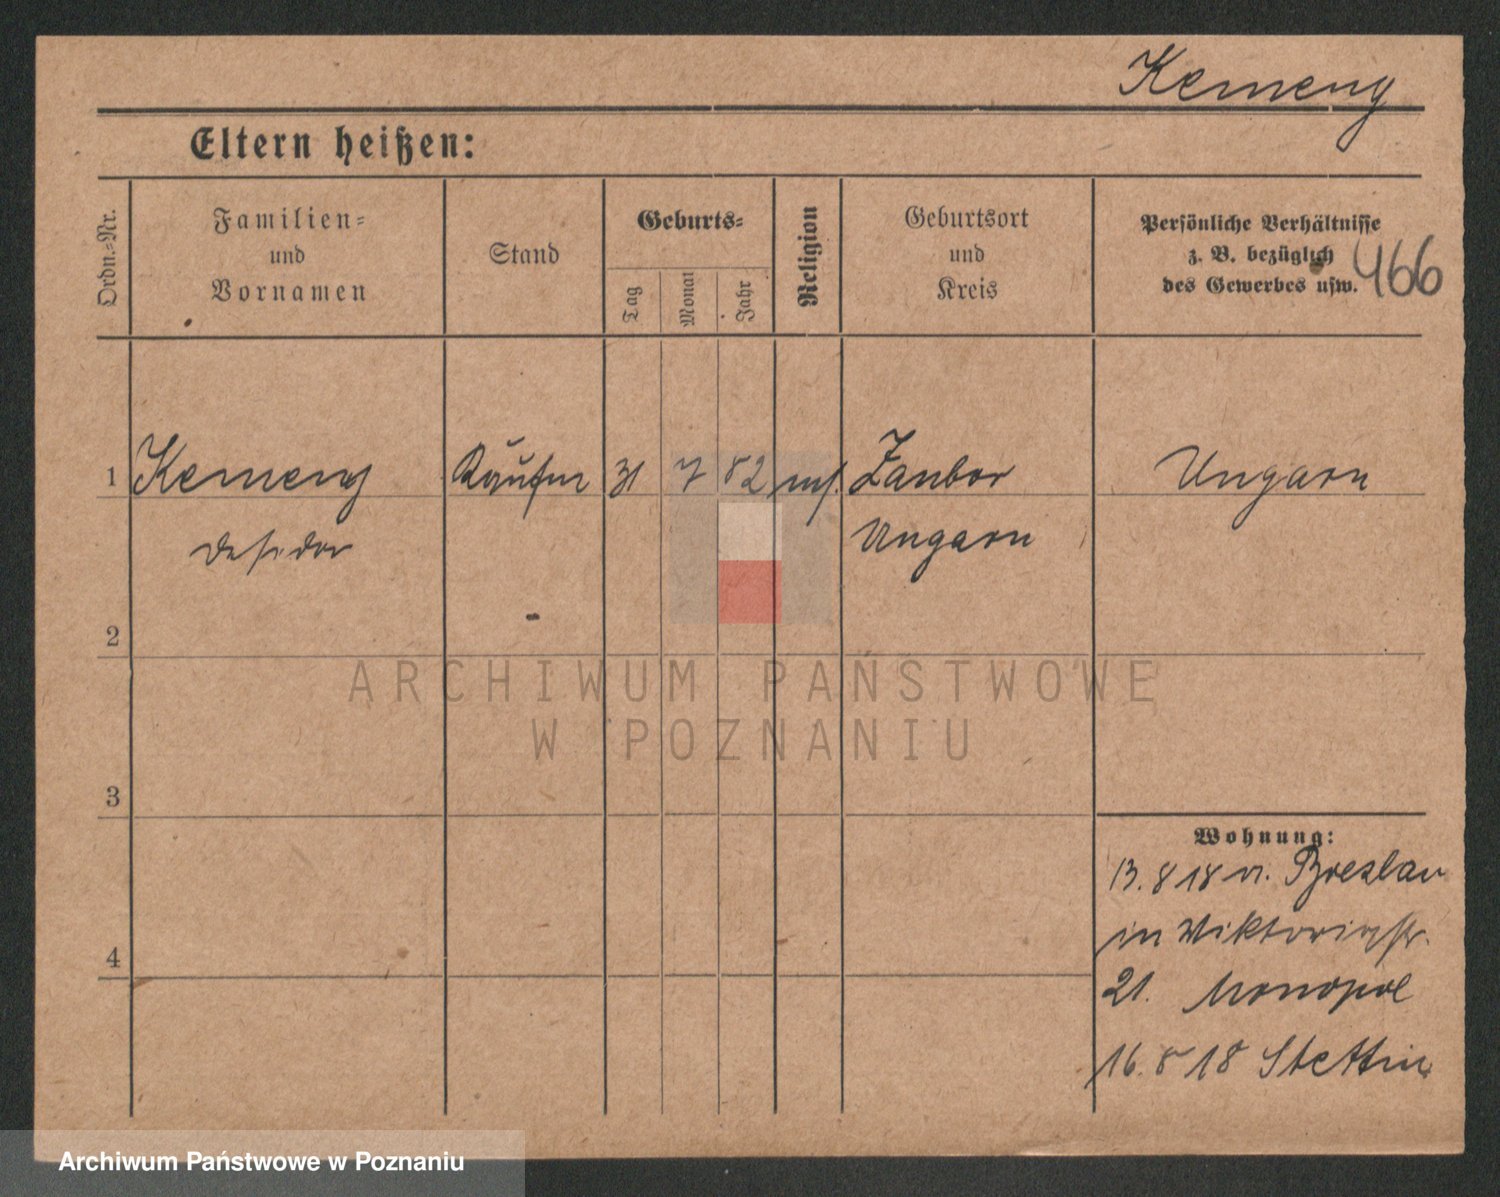 Kemeny
Eltern heißen:
Ordn.-Nr.
Familien-
und
Vornamen
Stand
Geburts-
Tag
Monat
Jahr
Religion
Geburtsort
und
Kreis
Persönliche Verhältnisse
z. B. bezüglich
des Gewerbes usw.
466
1 Kemeny 31 7 82 Zanbor Ungarn
Desider Ungarn
2
3
4
Wohnung:
13. 8 18 v. Breslau
in Viktoriastr.
21. Monopol
16. 8 18 Stettin
ARCHIWUM PAŃSTWOWE
W POZNANIU
Archiwum Państwowe w Poznaniu